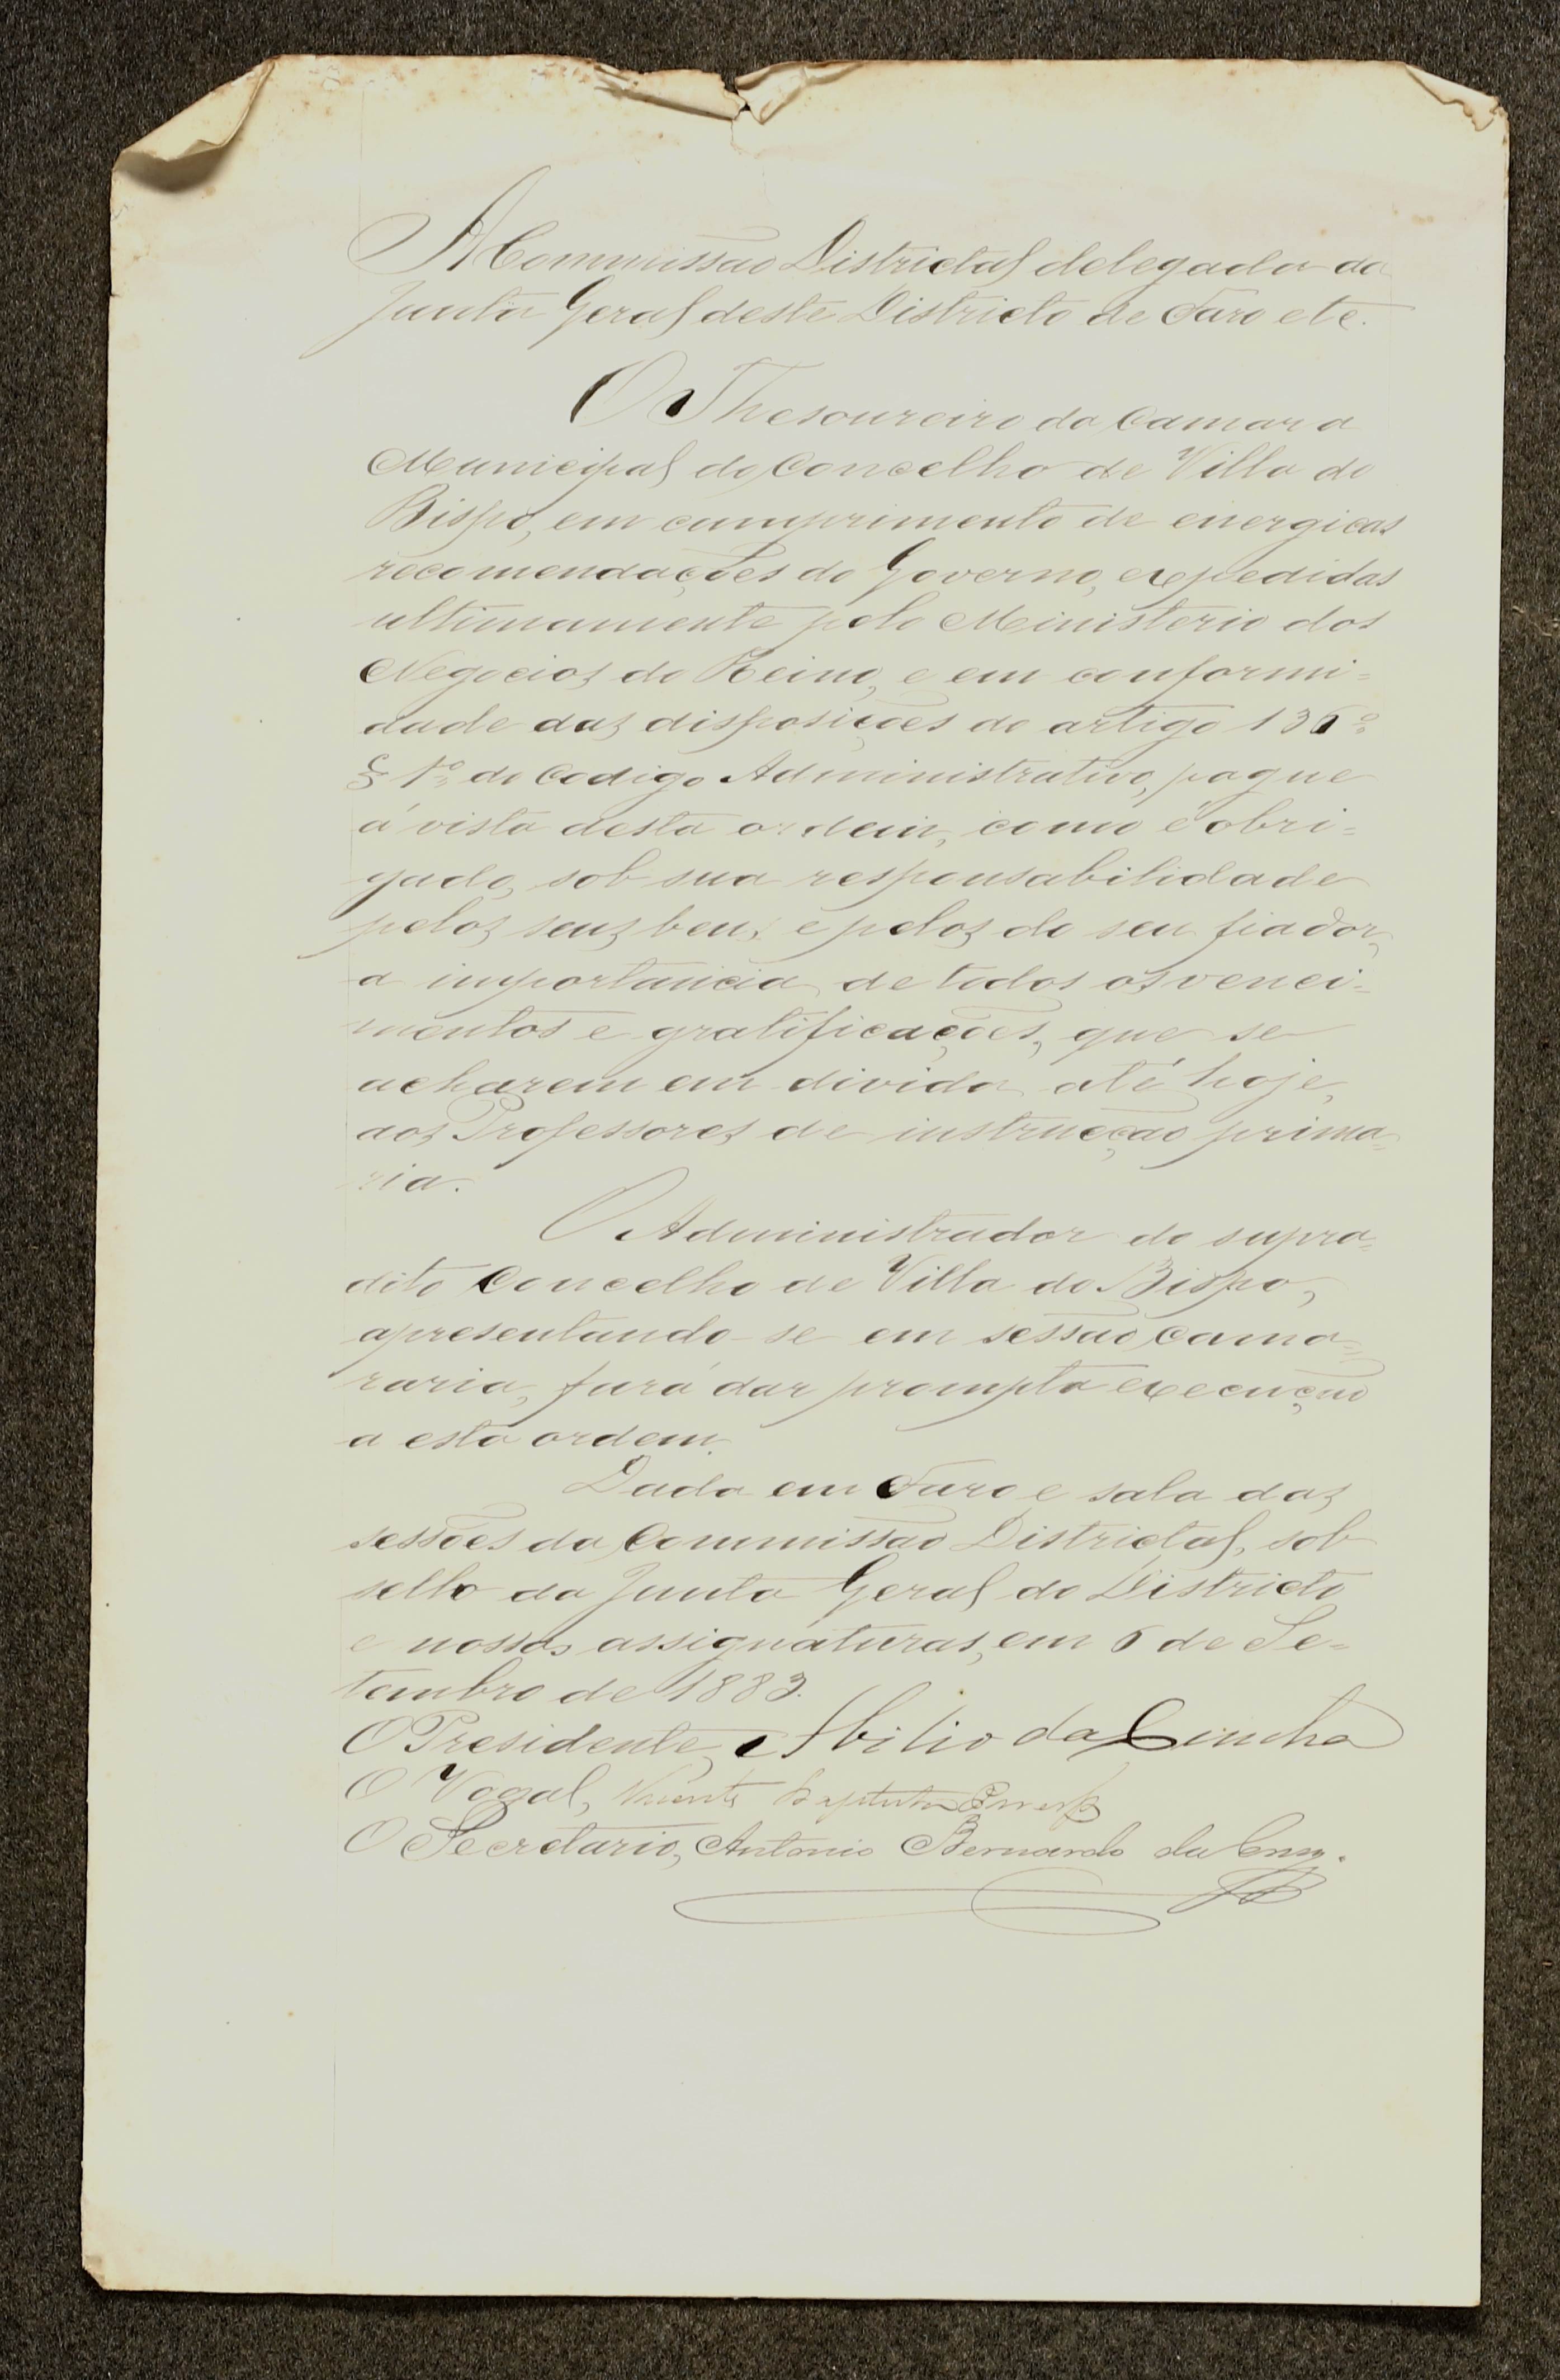 A Commissão Districtal delegada da
Junta Geral deste Districto de Faro etc.
O Thesoureiro da Camara
Municipal do Concelho de Villa do
Bispo, em cumprimento de energicas
recomendações do Governo, expedidas
ultimamente pelo Ministerio dos
Negocios do Reino, e em conformi=
dade das disposições do artigo 136º
§ 1º do Codigo Administrativo, pague
á vista desta ordem, como é obri=
gado, sob sua responsabilidade
pelos seus bens e pelos do seu fiador,
a importancia de todos os venci=
mentos e gratificações, que se
acharem em divida até hoje,
aos Professores de instrucção prima=
ria.
O Administrador do supra=
dito Concelho de Villa do Bispo,
apresentando-se em sessão cama=
raria, fará dar prompta execução
a esta ordem.
Dada em Faro e sala das
sessões da Commissão Districtal, sob
sello da Junta Geral do Districto
e nossas assignaturas, em 6 de Se=
tembro de 1883.
O Presidente, Abilio da Cunha
O Vogal, Vicente Baptista
O Secretario, Antonio Bernardo da Cruz.